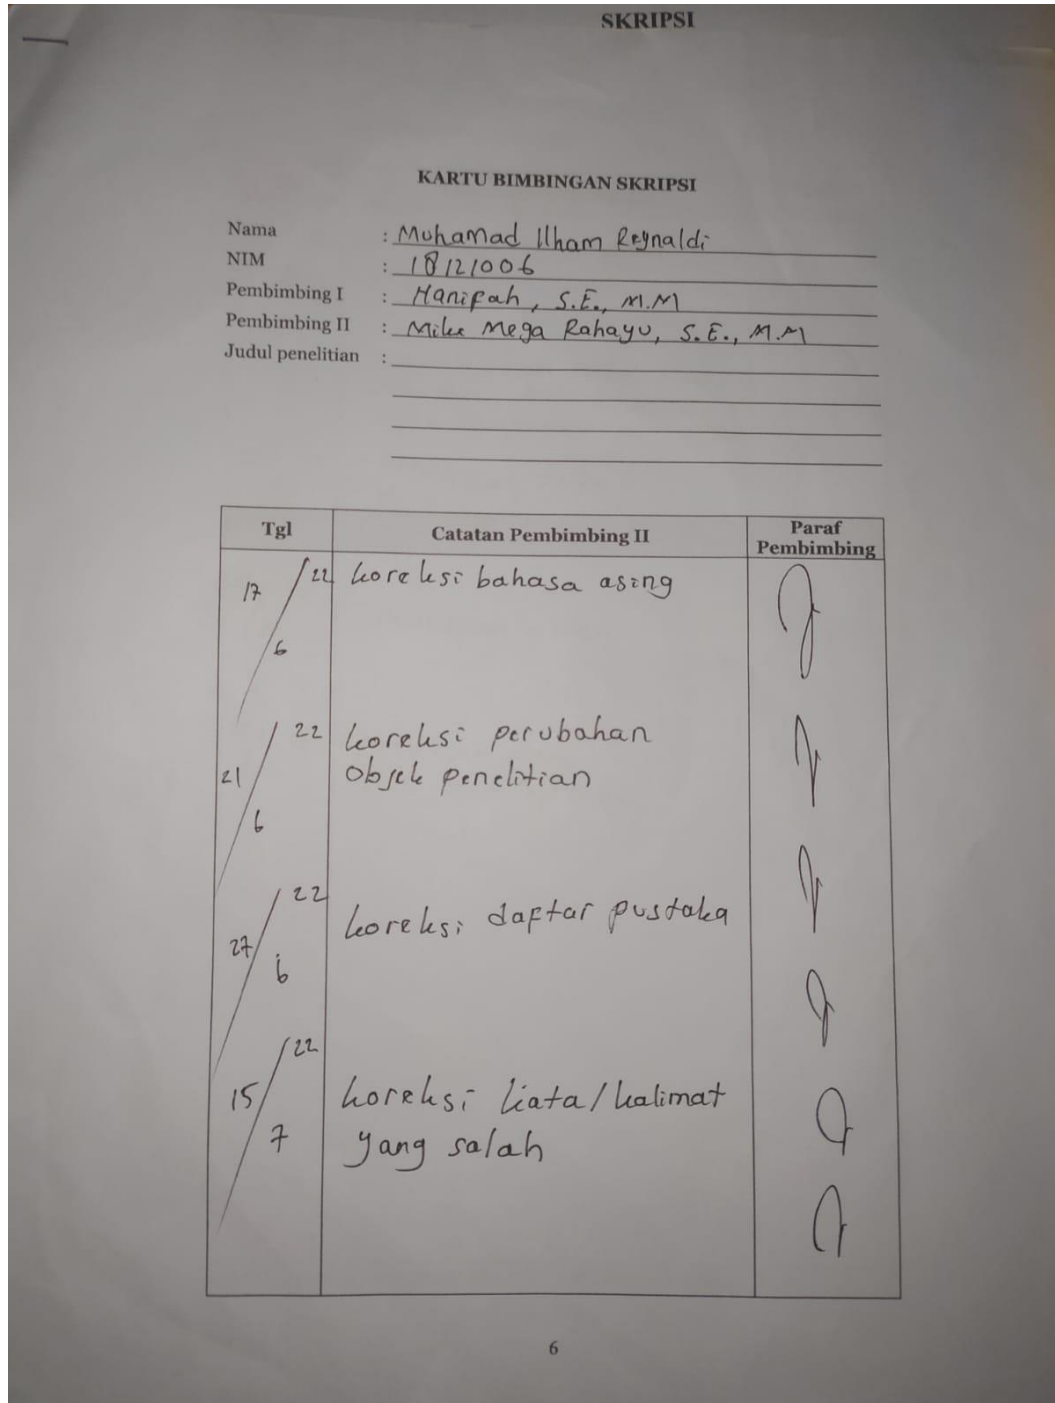 SKRIPSI
KARTU BIMBINGAN SKRIPSI
Nama : Muhamad Ilham Reynaldi
NIM : 18121006
Pembimbing I : Hanifah, S.E., M.M
Pembimbing II : Mike Mega Rahayu, S.E., M.M
Judul penelitian :
Tgl Catatan Pembimbing II Paraf Pembimbing
17/6/22 koreksi bahasa asing
21/6/22 koreksi perubahan
objek penelitian
27/6/22 koreksi daftar pustaka
15/7/22 koreksi kata/kalimat
yang salah
6